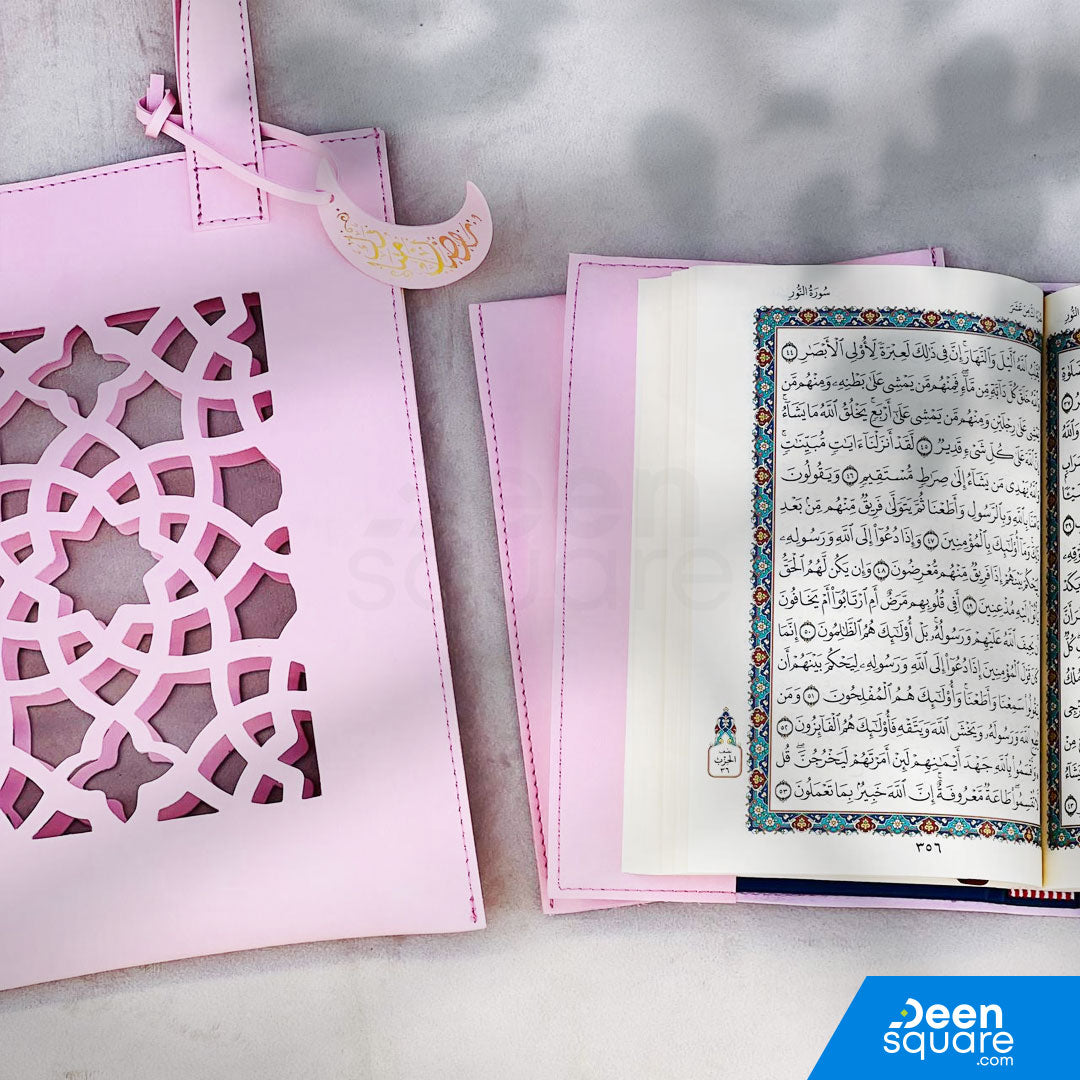 رمضان مبارك
سُورَةُ النُّور
يُقَلِّبُ ٱللَّهُ ٱلَّيۡلَ وَٱلنَّهَارَۚ إِنَّ فِي ذَٰلِكَ لَعِبۡرَةٗ لِّأُوْلِي ٱلۡأَبۡصَٰرِ ٤٤
وَٱللَّهُ خَلَقَ كُلَّ دَآبَّةٖ مِّن مَّآءٖۖ فَمِنۡهُم مَّن يَمۡشِي عَلَىٰ بَطۡنِهِۦ وَمِنۡهُم مَّن
يَمۡشِي عَلَىٰ رِجۡلَيۡنِ وَمِنۡهُم مَّن يَمۡشِي عَلَىٰٓ أَرۡبَعٖۚ يَخۡلُقُ ٱللَّهُ مَا يَشَآءُۚ
إِنَّ ٱللَّهَ عَلَىٰ كُلِّ شَيۡءٖ قَدِيرٞ ٤٥ لَّقَدۡ أَنزَلۡنَآ ءَايَٰتٖ مُّبَيِّنَٰتٖۚ
وَٱللَّهُ يَهۡدِي مَن يَشَآءُ إِلَىٰ صِرَٰطٖ مُّسۡتَقِيمٖ ٤٦ وَيَقُولُونَ
ءَامَنَّا بِٱللَّهِ وَبِٱلرَّسُولِ وَأَطَعۡنَا ثُمَّ يَتَوَلَّىٰ فَرِيقٞ مِّنۡهُم مِّنۢ بَعۡدِ
ذَٰلِكَۚ وَمَآ أُوْلَٰٓئِكَ بِٱلۡمُؤۡمِنِينَ ٤٧ وَإِذَا دُعُوٓاْ إِلَى ٱللَّهِ وَرَسُولِهِۦ
لِيَحۡكُمَ بَيۡنَهُمۡ إِذَا فَرِيقٞ مِّنۡهُم مُّعۡرِضُونَ ٤٨ وَإِن يَكُن لَّهُمُ ٱلۡحَقُّ
يَأۡتُوٓاْ إِلَيۡهِ مُذۡعِنِينَ ٤٩ أَفِي قُلُوبِهِم مَّرَضٌ أَمِ ٱرۡتَابُوٓاْ أَمۡ يَخَافُونَ
أَن يَحِيفَ ٱللَّهُ عَلَيۡهِمۡ وَرَسُولُهُۥۚ بَلۡ أُوْلَٰٓئِكَ هُمُ ٱلظَّٰلِمُونَ ٥٠ إِنَّمَا
كَانَ قَوۡلَ ٱلۡمُؤۡمِنِينَ إِذَا دُعُوٓاْ إِلَى ٱللَّهِ وَرَسُولِهِۦ لِيَحۡكُمَ بَيۡنَهُمۡ أَن
يَقُولُواْ سَمِعۡنَا وَأَطَعۡنَاۚ وَأُوْلَٰٓئِكَ هُمُ ٱلۡمُفۡلِحُونَ ٥١ وَمَن
يُطِعِ ٱللَّهَ وَرَسُولَهُۥ وَيَخۡشَ ٱللَّهَ وَيَتَّقۡهِ فَأُوْلَٰٓئِكَ هُمُ ٱلۡفَآئِزُونَ ٥٢
وَأَقۡسَمُواْ بِٱللَّهِ جَهۡدَ أَيۡمَٰنِهِمۡ لَئِنۡ أَمَرۡتَهُمۡ لَيَخۡرُجُنَّۖ قُل
لَّا تُقۡسِمُواْۖ طَاعَةٞ مَّعۡرُوفَةٌۚ إِنَّ ٱللَّهَ خَبِيرُۢ بِمَا تَعۡمَلُونَ ٥٣
نصف
الحزب
٣٦
٣٥٦
Deen
square
Deen
square
.com